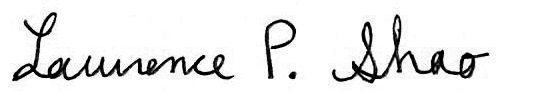 Lawrence P. Shao